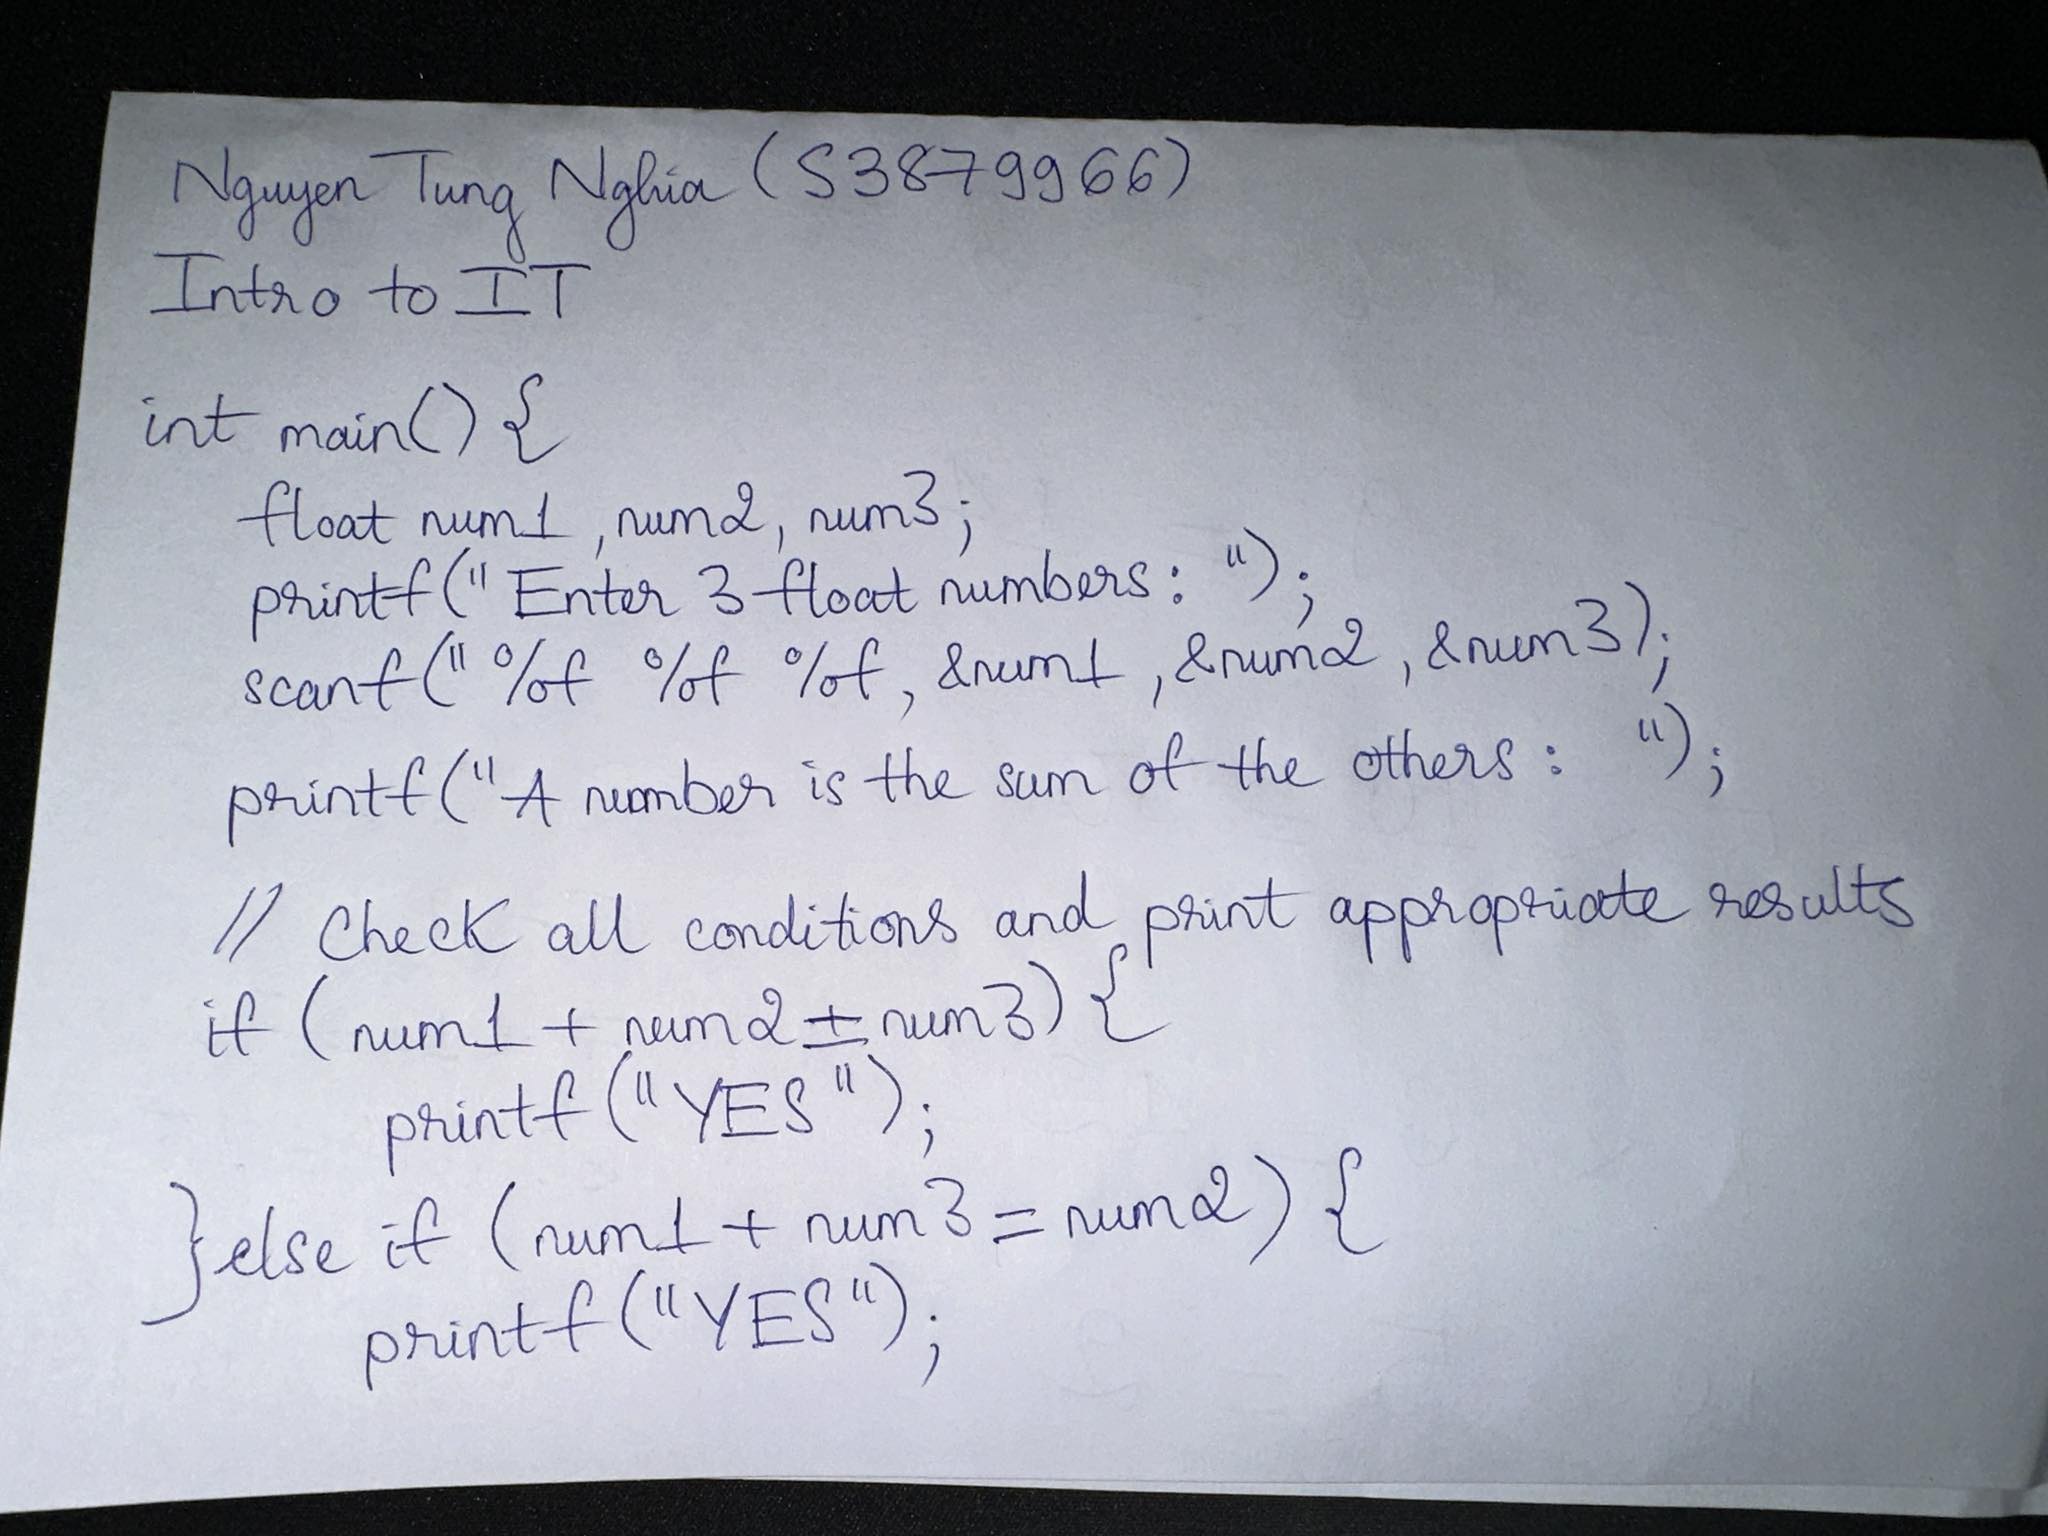 Nguyen Tung Nghia (S3879966)
Intro to IT
int main() {
float num1, num2, num3;
printf(" Enter 3 float numbers: ");
scanf(" %f %f %f, &num1, &num2, &num3);
printf("A number is the sum of the others: ");
// Check all conditions and print appropriate results
if (num1 + num2 ± num3) {
printf("YES");
} else if (num1 + num3 = num2) {
printf("YES");